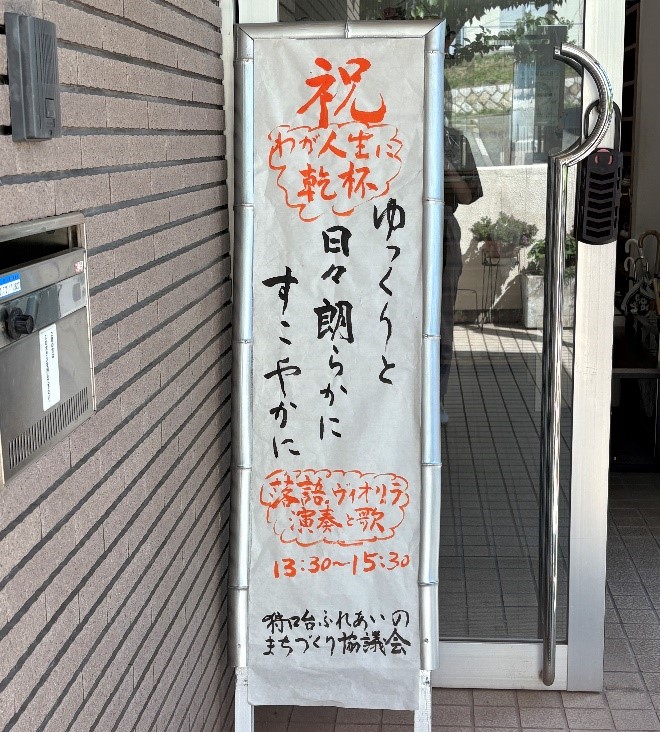 祝
わが人生に
乾杯
ゆっくりと
日々朗らかに
すこやかに
落語、ヴィオリラ
演奏と歌
13:30〜15:30
狩口台ふれあいの
まちづくり協議会